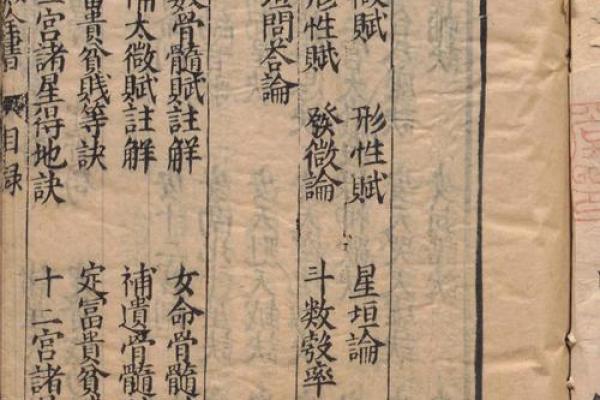 微賦 形性賦 星垣論
形性賦 發微論 斗數彀率
垣問答論
數骨髓賦註解 女命骨髓
太微賦註解 補遺骨髓
富貴貧賤等訣 定富貴貧
二宮諸星得地訣 十二宮諸
全書 目錄